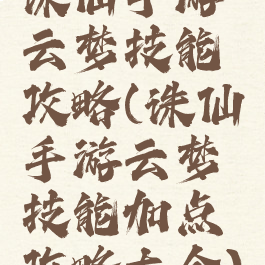 诛仙手游
云梦技能
攻略(诛仙
手游云梦
技能加点
攻略大全)